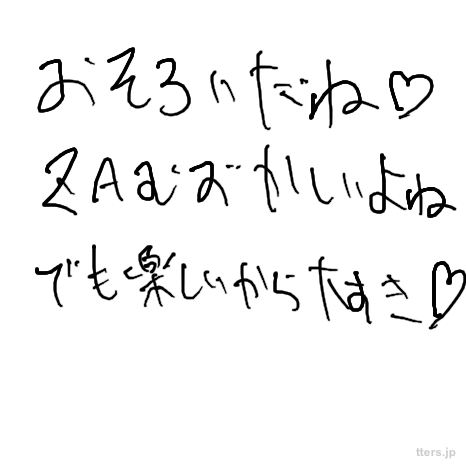 おそろいだね♡
ZAむずかしいよね
でも楽しいからすき♡
tters.jp